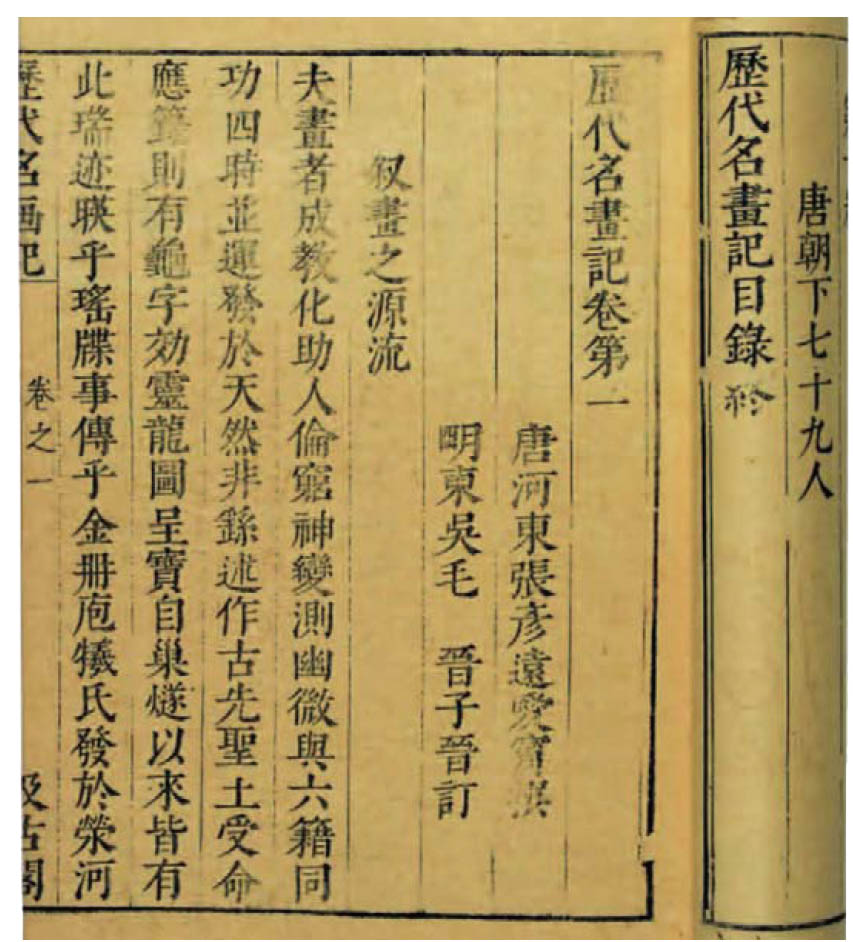 唐朝下七十九人
歷代名畫記目錄 終
歷代名畫記卷第一
唐河東張彥遠愛賓撰
明東吳毛 晉子晉訂
叙畫之源流
夫畫者成教化助人倫窮神變測幽微與六籍同
功四時並運發於天然非繇述作古先聖王受命
應籙則有龜字効靈龍圖呈寶自巢燧以來皆有
此瑞迹暎乎瑤牒事傳乎金冊庖犧氏發於滎河
歷代名画記
卷之一
汲古閣